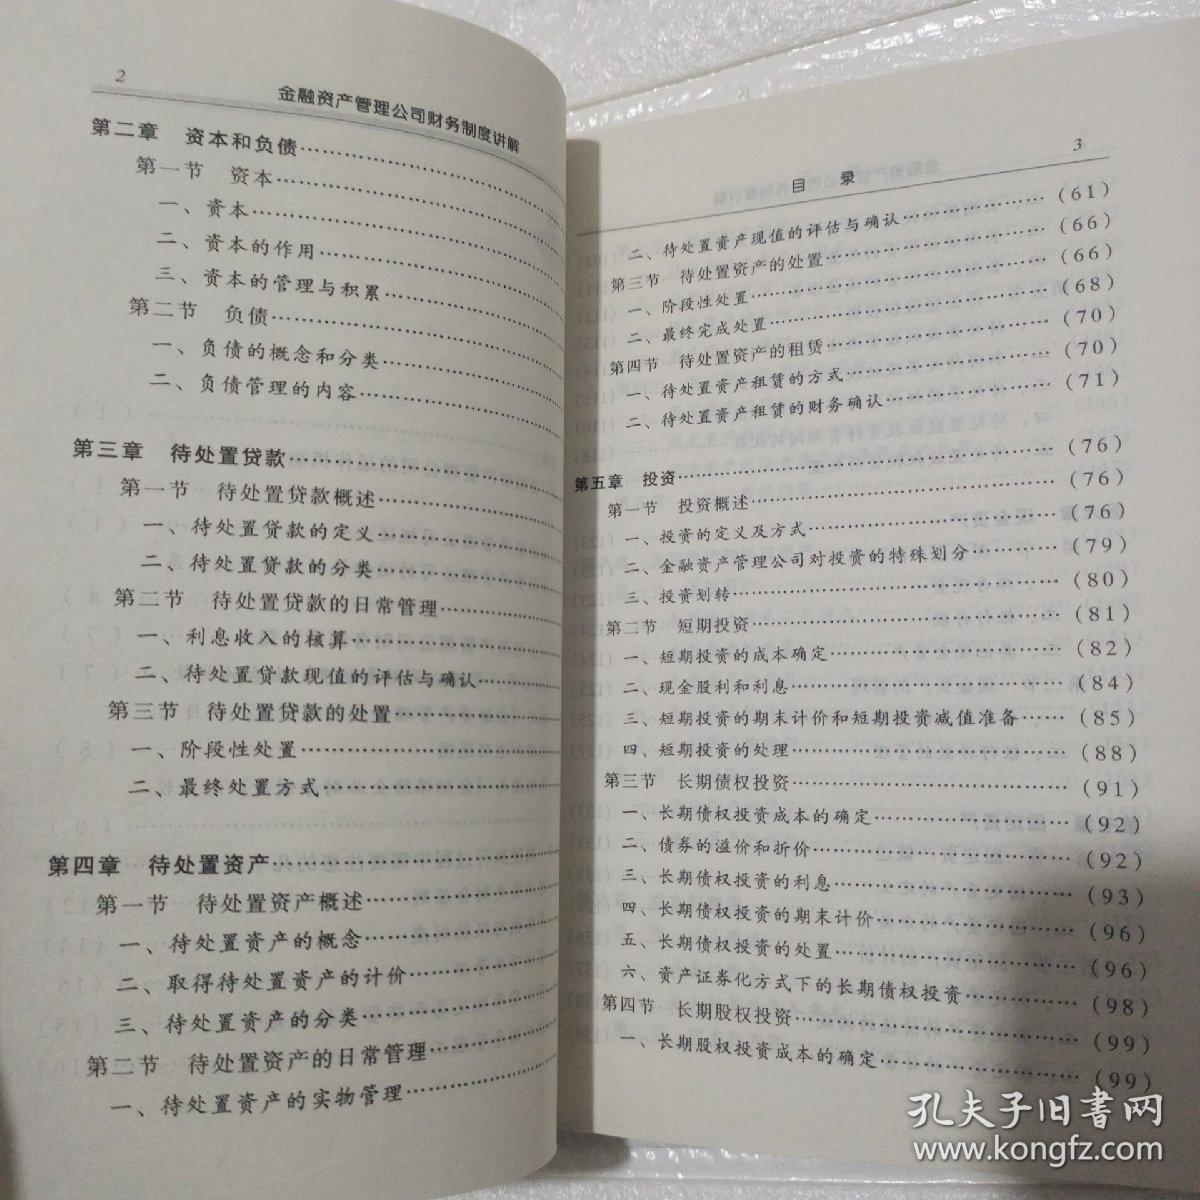 2
金融资产管理公司财务制度讲解
第二章 资本和负债
第一节 资本
一、资本
二、资本的作用
三、资本的管理与积累
第二节 负债
一、负债的概念和分类
二、负债管理的内容
第三章 待处置贷款
第一节 待处置贷款概述
一、待处置贷款的定义
二、待处置贷款的分类
第二节 待处置贷款的日常管理
一、利息收入的核算
二、待处置贷款现值的评估与确认
第三节 待处置贷款的处置
一、阶段性处置
二、最终处置方式
第四章 待处置资产
第一节 待处置资产概述
一、待处置资产的概念
二、取得待处置资产的计价
三、待处置资产的分类
第二节 待处置资产的日常管理
一、待处置资产的实物管理
目 录
3
二、待处置资产现值的评估与确认 (61)
第三节 待处置资产的处置 (66)
一、阶段性处置 (66)
二、最终完成处置 (68)
第四节 待处置资产的租赁 (70)
一、待处置资产租赁的方式 (70)
二、待处置资产租赁的财务确认 (71)
第五章 投资 (76)
第一节 投资概述 (76)
一、投资的定义及方式 (76)
二、金融资产管理公司对投资的特殊划分 (79)
三、投资划转 (80)
第二节 短期投资 (81)
一、短期投资的成本确定 (82)
二、现金股利和利息 (84)
三、短期投资的期末计价和短期投资减值准备 (85)
四、短期投资的处理 (88)
第三节 长期债权投资 (91)
一、长期债权投资成本的确定 (92)
二、债券的溢价和折价 (92)
三、长期债权投资的利息 (93)
四、长期债权投资的期末计价 (96)
五、长期债权投资的处置 (96)
六、资产证券化方式下的长期债权投资 (98)
第四节 长期股权投资 (99)
一、长期股权投资成本的确定 (99)
孔夫子旧书网
www.kongfz.com